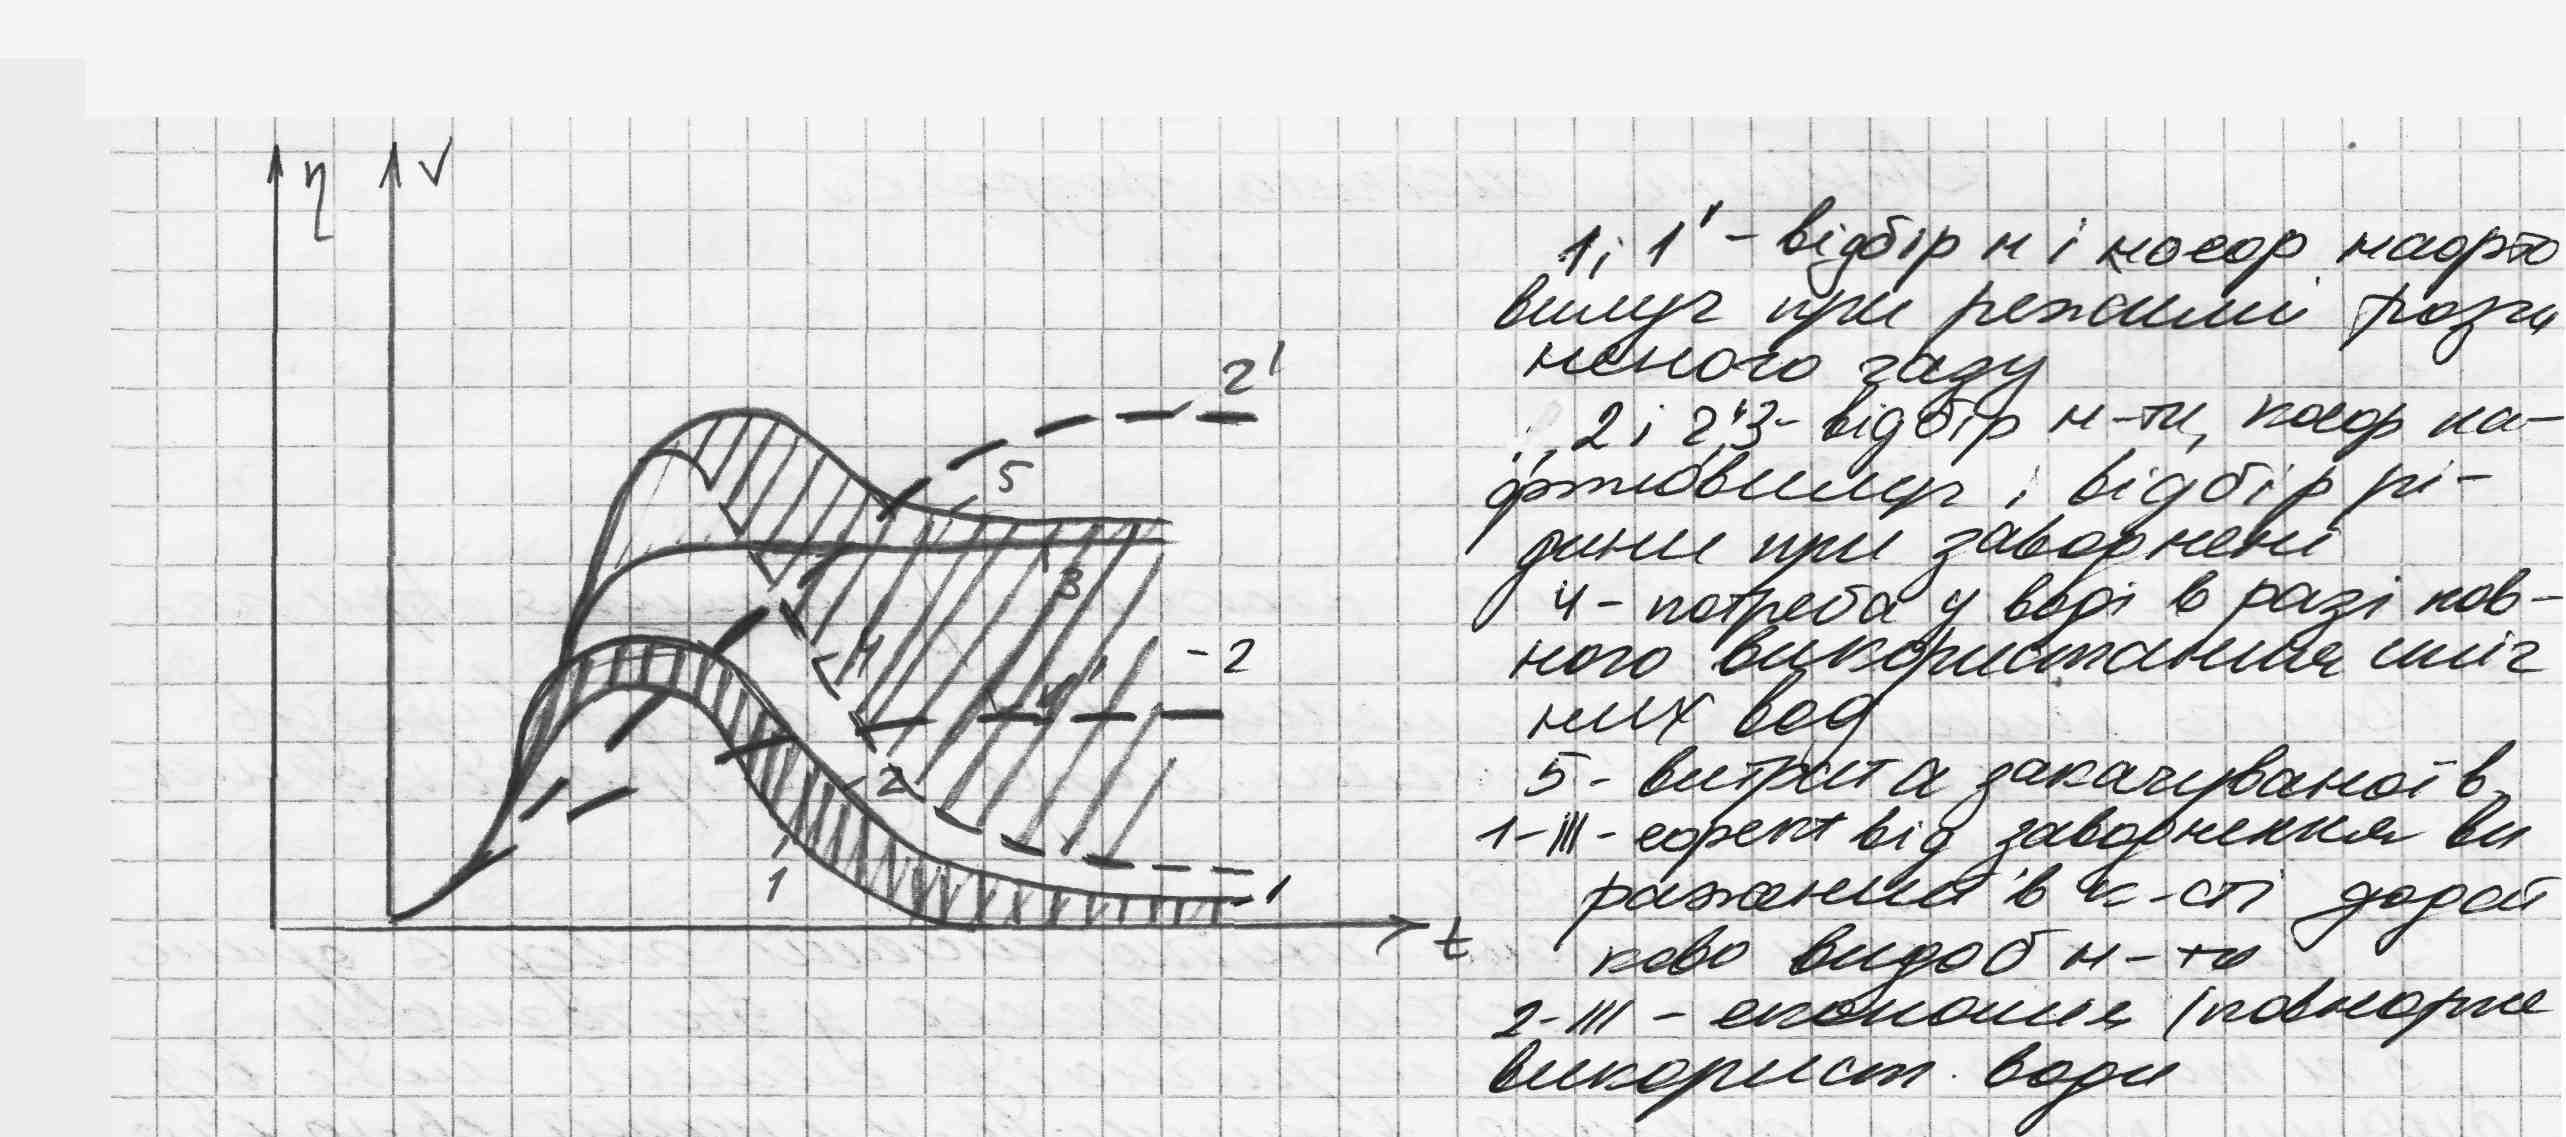 η V
2'
5
3
4
- 2
1'
2
1
1
t
1, 1' - відбір н і коеф нафто
вилуч при режимі розчи
неного газу
2 і 2', 3 - відбір н-ти, коеф на-
фтовилуч і відбір рі-
дини при заводнені
4 - потреба у воді в разі пов-
ного використання стіч
них вод
5 - витрата закачуваної в.
1-III - ефект від заводнення ви
ражений в к-сті додат
ково видоб н-ти
2-III - економія (повторне
використ. води